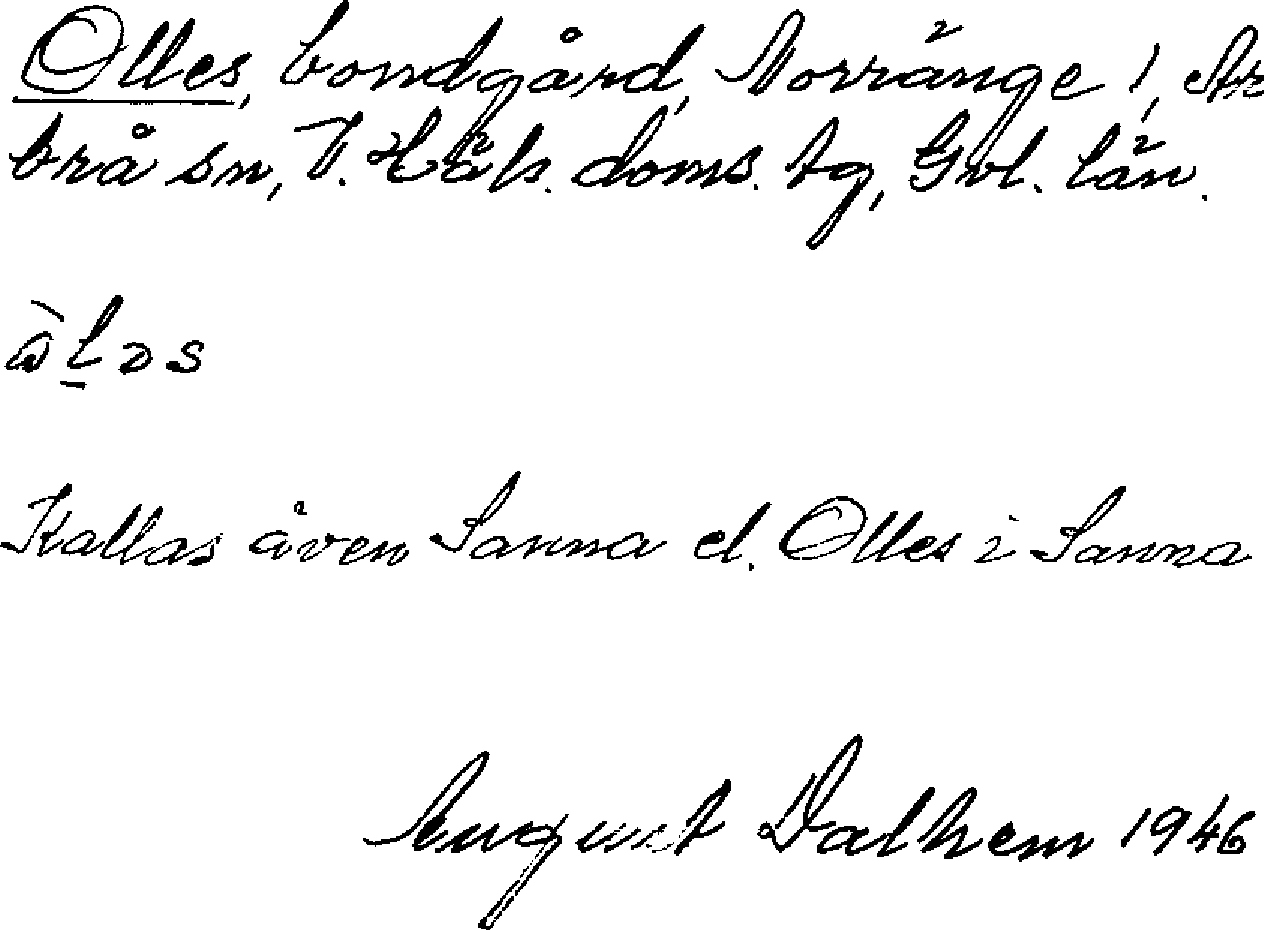 Olles, bondgård, Norränge 1, Ar
brå sn, V. Häls. doms. tg, Gvl. län.
òl̠əs
Kallas även Sanna el. Olles i Sanna
August Dalhem 1946